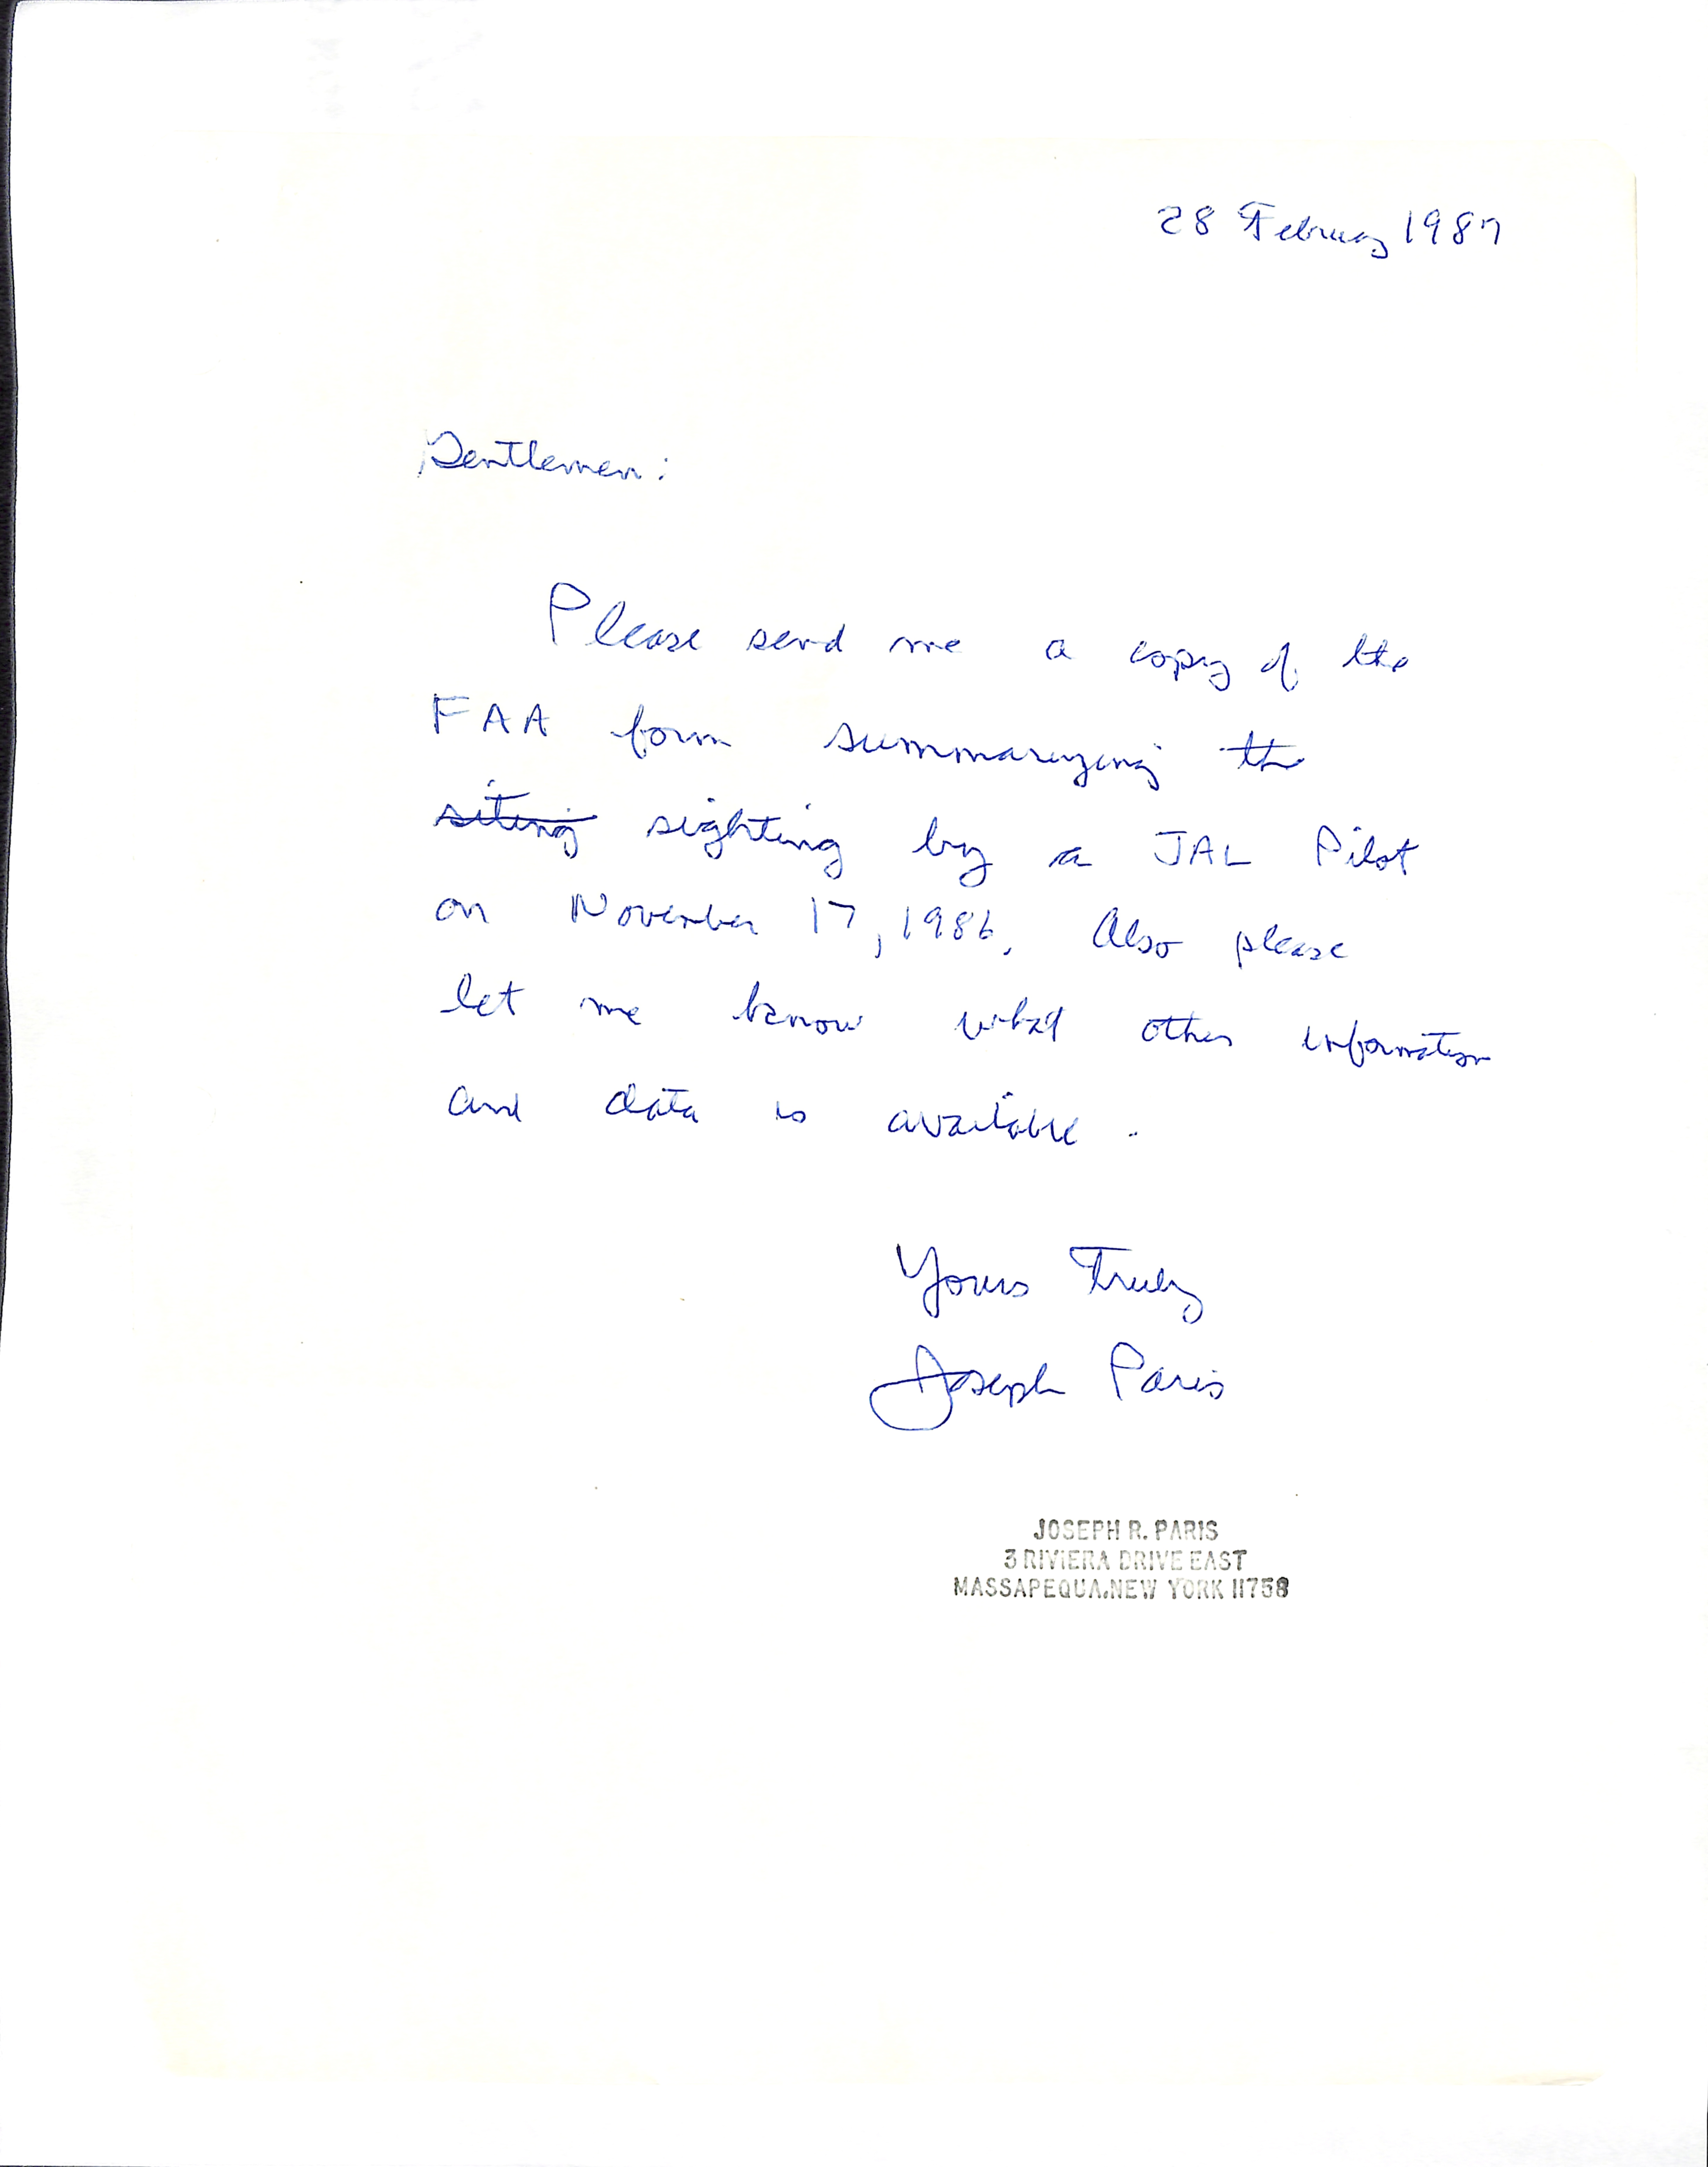 28 February 1987
Gentlemen:
Please send me a copy of the
FAA form summarizing the
siting sighting by a JAL Pilot
on November 17, 1986. Also please
let me know what other information
and data is available.
Yours Truly
Joseph Paris
JOSEPH R. PARIS
3 RIVIERA DRIVE EAST
MASSAPEQUA, NEW YORK 11758